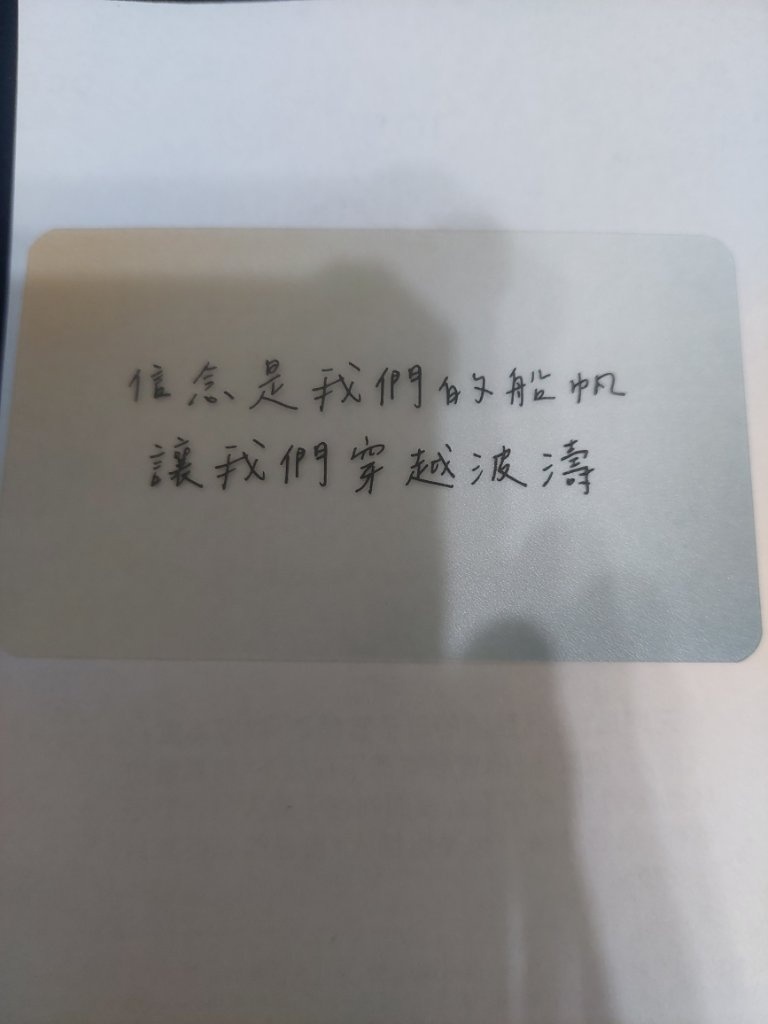 信念是我們的船帆
讓我們穿越波濤